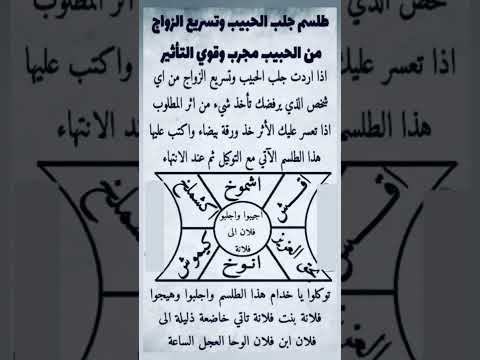 طلسم جلب الحبيب وتسريع الزواج
من الحبيب مجرب وقوي التأثير
اذا اردت جلب الحبيب وتسريع الزواج من اي
شخص الذي يرفضك تأخذ شيء من اثر المطلوب
اذا تعسر عليك الأثر خذ ورقة بيضاء واكتب عليها
هذا الطلسم الآتي مع التوكيل ثم عند الانتهاء
اشموخ
اقش
كشملخ
اجيبوا واجلبو
فلان الى
فلانة
بحق العزيز
كيموش
انوخ
توكلوا يا خدام هذا الطلسم واجلبوا وهيجوا
فلانة بنت فلانة تاتي خاضعة ذليلة الى
فلان ابن فلان الوحا العجل الساعة